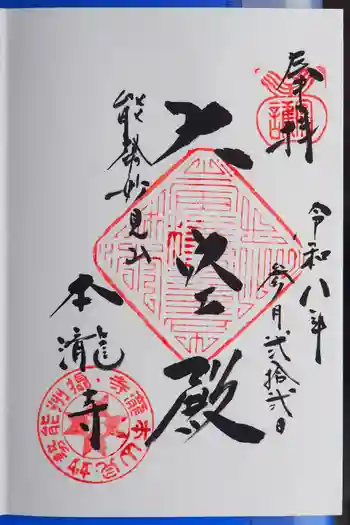 奉拝
令和八年
参月弐拾弐日
大空殿
能勢妙見山
本瀧寺